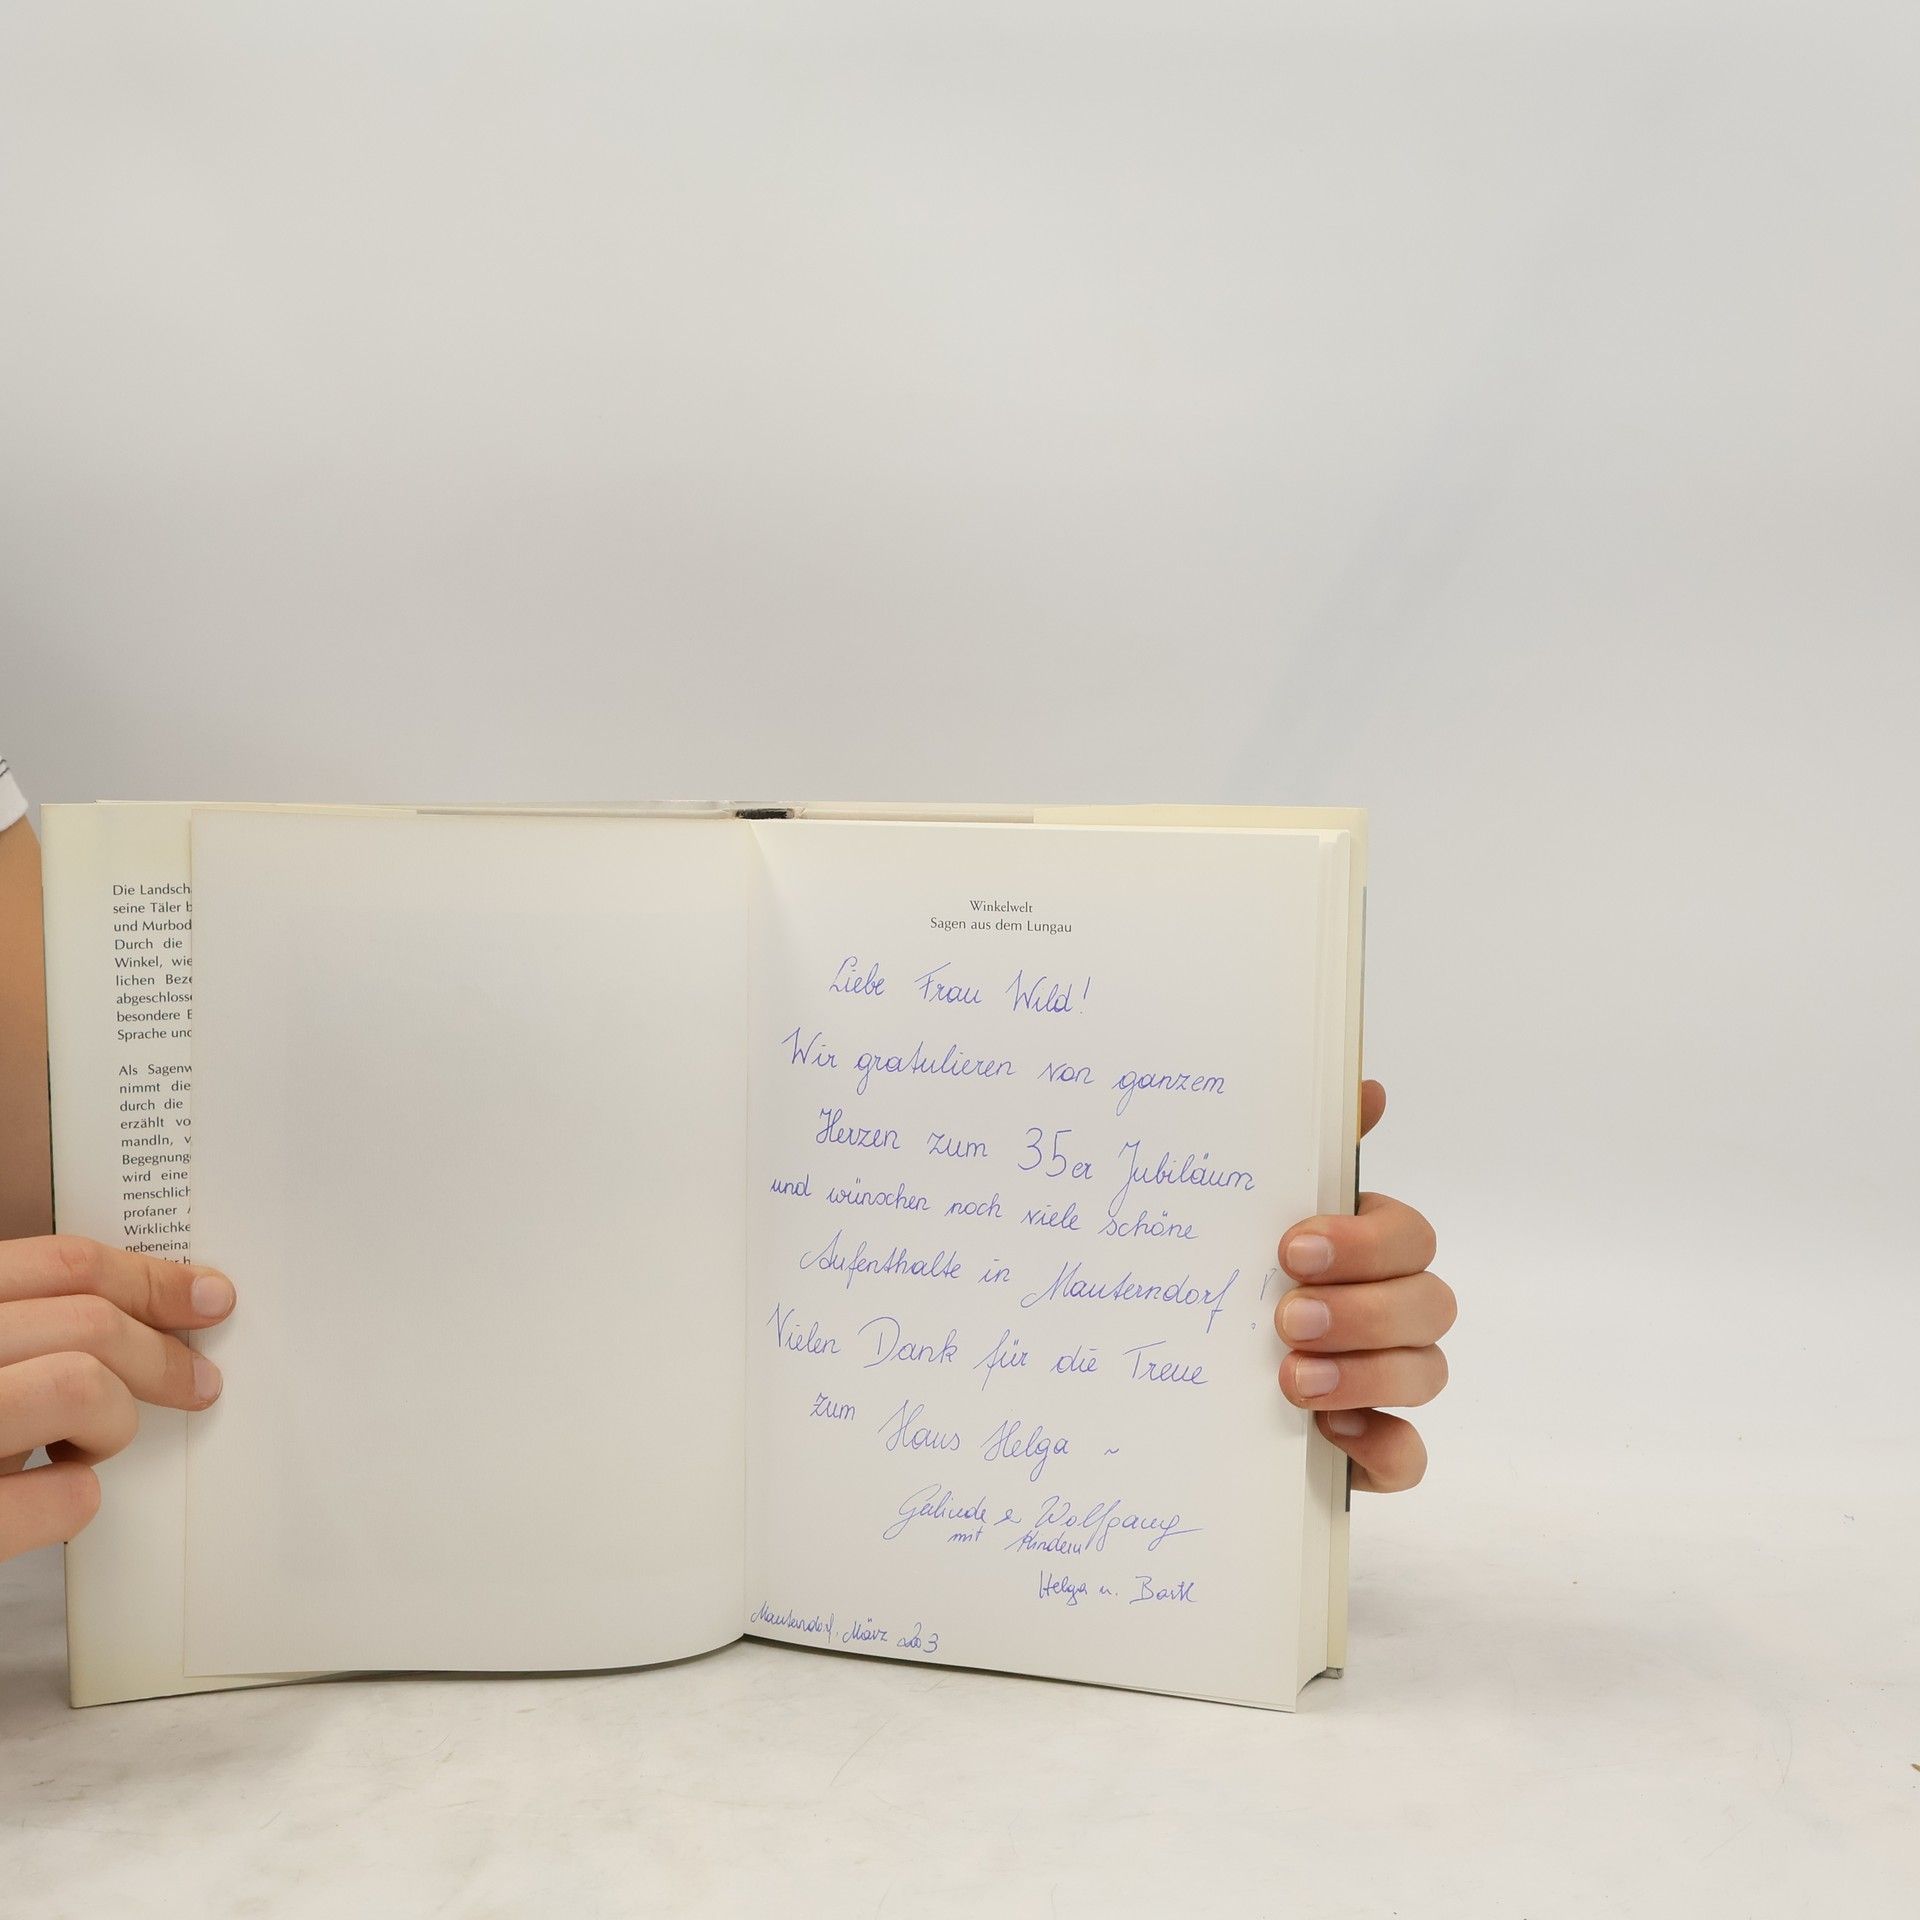 Die Landsch
seine Täler b
und Murbod
Durch die
Winkel, wie
lichen Beze
abgeschlosse
besondere E
Sprache und
Als Sagenw
nimmt die
durch die
erzählt vo
mandln, v
Begegnung
wird eine
menschlich
profaner A
Wirklichke
nebeneina
Winkelwelt
Sagen aus dem Lungau
Liebe Frau Wild!
Wir gratulieren von ganzem
Herzen zum 35er Jubiläum
und wünschen noch viele schöne
Aufenthalte in Mauterndorf!
Vielen Dank für die Treue
zum Haus Helga ~
Gerlinde & Wolfgang
mit Kindern
Helga u. Bartl
Mauterndorf, März 2003